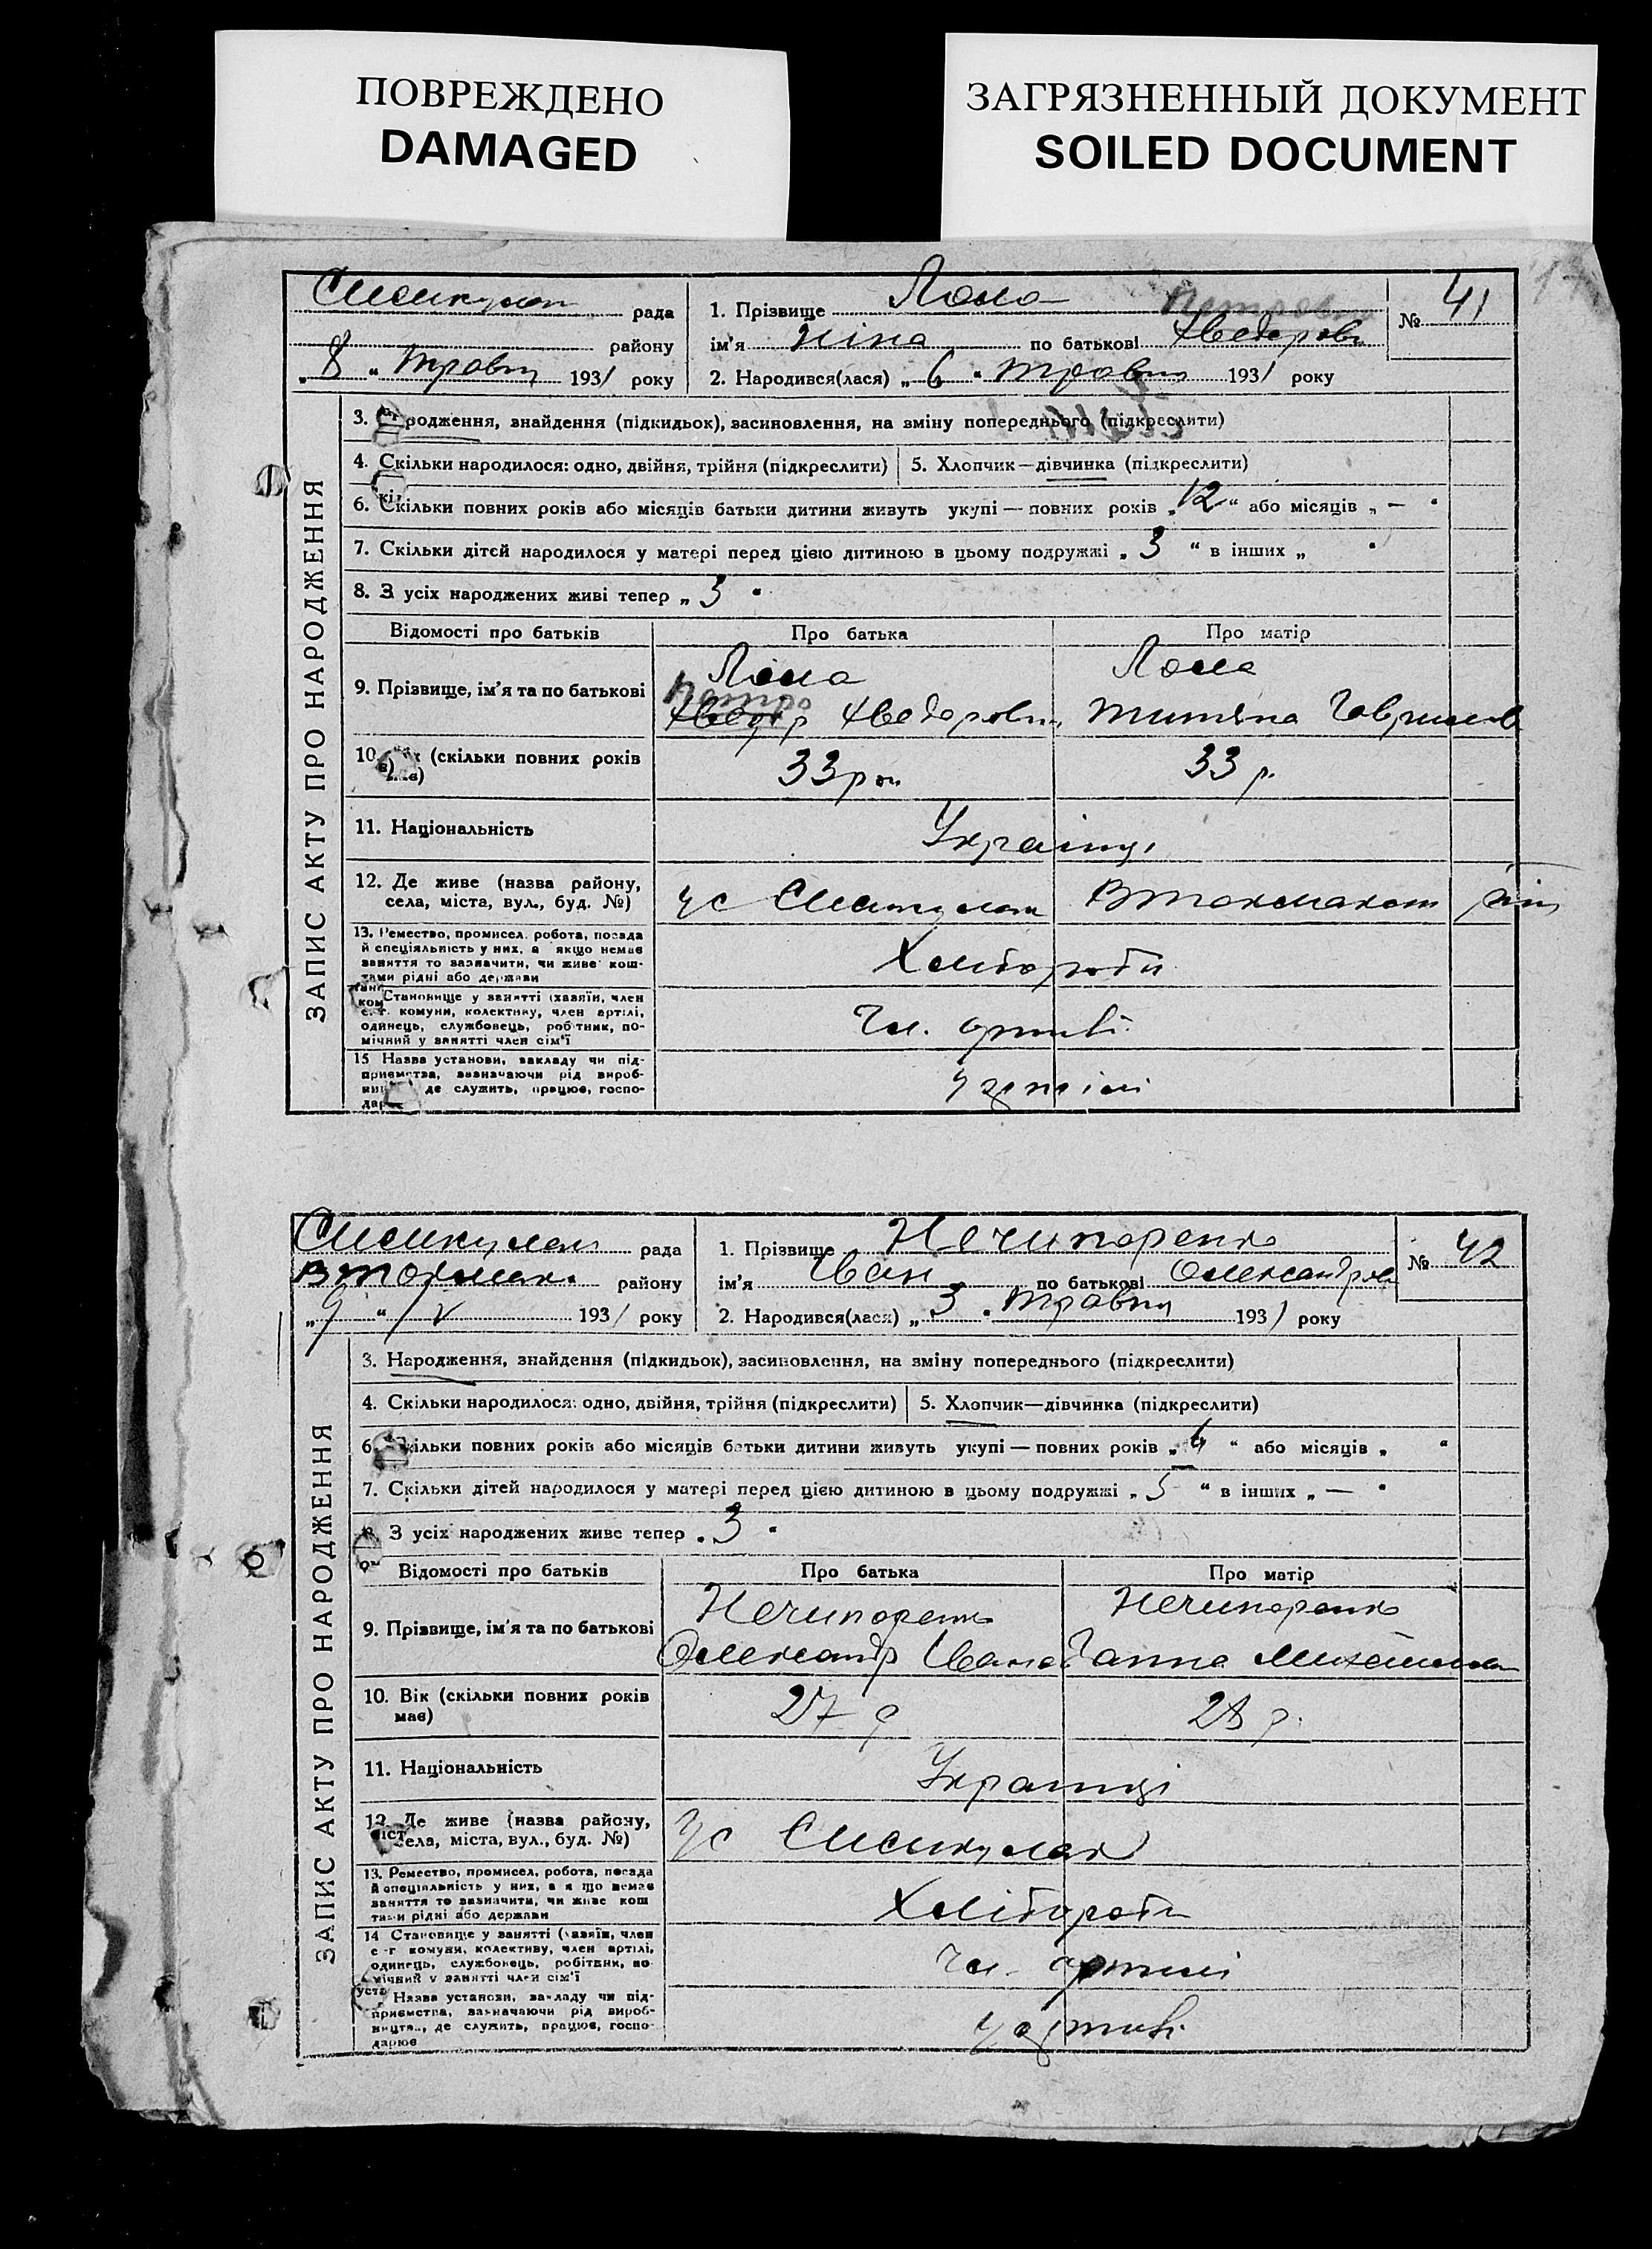 ПОВРЕЖДЕНО
DAMAGED
ЗАГРЯЗНЕННЫЙ ДОКУМЕНТ
SOILED DOCUMENT
ЗАПИС АКТУ ПРО НАРОДЖЕННЯ
рада
району
„ 8 “ травня 1931 року
1. Прізвище Лома
ім'я Ніна по батькові Хведоровн
№ 41
2. Народився(лася) „ 6 “ травня 1931 року
3. Народження, знайдення (підкидьок), засиновлення, на зміну попереднього (підкреслити)
4. Скільки народилося: одно, двійня, трійня (підкреслити) 5. Хлопчик—дівчинка (підкреслити)
6. Скільки повних років або місяців батьки дитини живуть укупі — повних років „ 12 “ або місяців „ — “
7. Скільки дітей народилося у матері перед цією дитиною в цьому подружжі „ 3 “ в інших „ “
8. З усіх народжених живі тепер „ 3 “
Відомості про батьків Про батька Про матір
9. Прізвище, ім'я та по батькові
Лома Лома
Петро
Хведір Хведорович
10. (скільки повних років має) 33 рок 33 р.
11. Національність Українці
12. Де живе (назва району, села, міста, вул., буд. №)
у с В Токмакот
13. Ремество, промисел, робота, посада
й спеціяльність у них, а якщо немає
заняття то зазначити, чи живе кош-
тами рідні або держави
Хлібороби
Становище у занятті (хазяїн, член
с.-г. комуни, колективу, член артілі,
одинець, службовець, робітник, по-
мічний у занятті член сім'ї
Чл. артілі
15 Назва установи, закладу чи під-
приємства, зазначаючи рід вироб-
де служить, працює, госпо-
дар
рада
В Токмак. району
„ 9 “ V 1931 року
1. Прізвище Нечипоренко
ім'я Іван по батькові Олександров
№ 42
2. Народився(лася) „ 3 “ травня 1931 року
3. Народження, знайдення (підкидьок), засиновлення, на зміну попереднього (підкреслити)
4. Скільки народилося: одно, двійня, трійня (підкреслити) 5. Хлопчик—дівчинка (підкреслити)
6. Скільки повних років або місяців батьки дитини живуть укупі — повних років „ 6 “ або місяців „ “
7. Скільки дітей народилося у матері перед цією дитиною в цьому подружжі „ 5 “ в інших „ — “
З усіх народжених живе тепер „ 3 “
Відомості про батьків Про батька Про матір
9. Прізвище, ім'я та по батькові
Нечипоренко Нечипоренко
Олександр Іванов Ганна Михайлівна
10. Вік (скільки повних років має) 27 р 28 р.
11. Національність Українці
12. Де живе (назва району, села, міста, вул., буд. №)
У с
13. Ремество, промисел, робота, посада
й спеціяльність у них, а якщо немає
заняття то зазначити, чи живе кош
тами рідні або держави
Хлібороби
14 Становище у занятті (хазяїн, член
с-г комуни, колективу, член артілі,
одинець, службовець, робітник, по
мічний у занятті член сім'ї
Чл. артілі
Назва установи, закладу чи під-
приємства, зазначаючи рід вироб-
ництва, де служить, працює, госпо-
дарює
У артілі
ЗАПИС АКТУ ПРО НАРОДЖЕННЯ